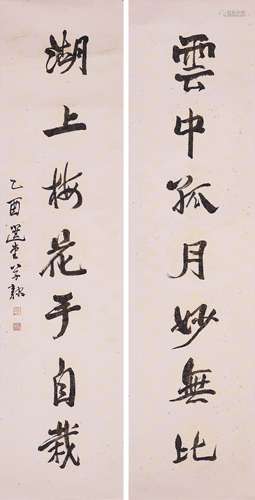 雲中孤月妙無比
湖上梅花手自栽
乙酉選堂學隸